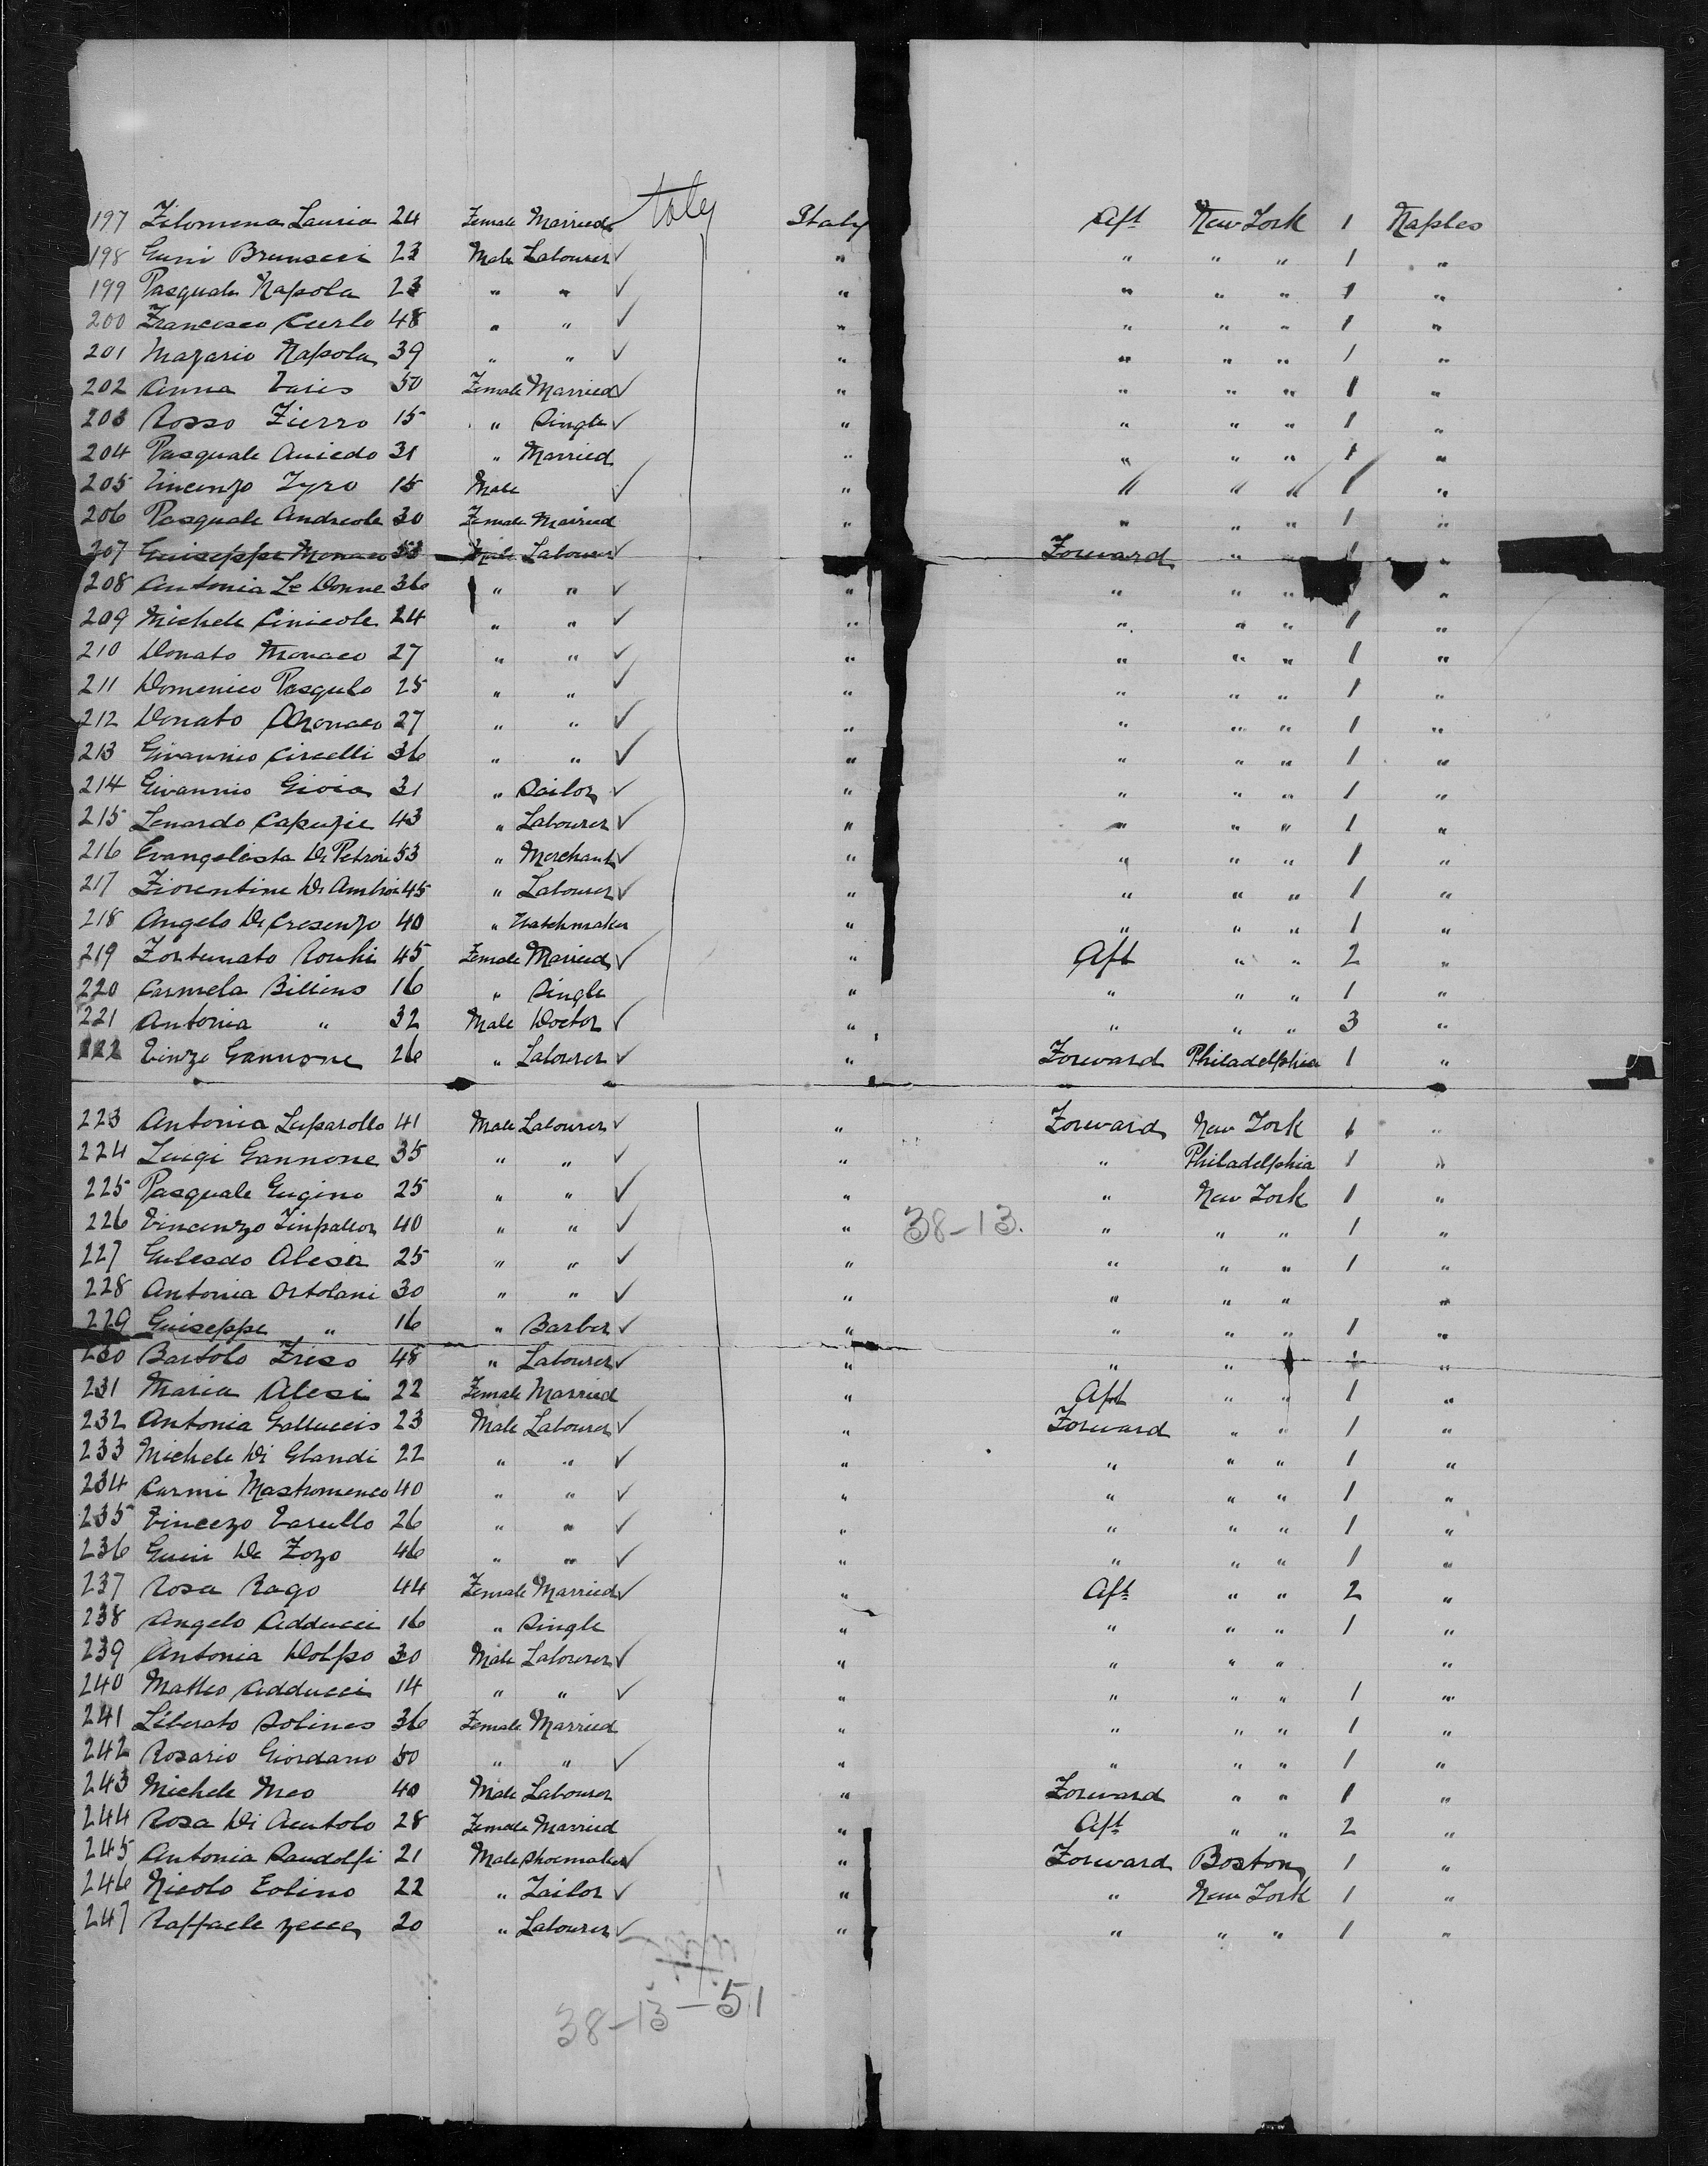 197 Filomena Lauria 24 Female Married Italy Italy Aft New York 1 Naples
198 Guiri Brunseci 23 Male Labourer " " " " 1 "
199 Pasquale Napola 23 " " " " " " 1 "
200 Francesco Curlo 48 " " " " " " 1 "
201 Mazario Napola 39 " " " " " " 1 "
202 Anna Varis 50 Female Married " " " " 1 "
203 Rosso Fierro 15 " Single " " " " 1 "
204 Pasquale Auiedo 31 " Married " " " " 1 "
205 Vincenzo Tyro 15 Male " " " " 1 "
206 Pasquale Andreola 30 Female Married " " " " 1 "
207 Guiseppe Monaco 53 Male Labourer Forward " 1 "
208 Antonia Le Donne 36 " " " " " " "
209 Michele Cinicole 24 " " " " " " 1 "
210 Donato Monaco 27 " " " " " " 1 "
211 Domenico Pasqulo 25 " " " " " " 1 "
212 Donato Monaco 27 " " " " " " 1 "
213 Givannio Circelli 36 " " " " " " 1 "
214 Givannio Gioia 31 " Sailor " " " " 1 "
215 Lenardo Capuzie 43 " Labourer " " " " 1 "
216 Evangelista Di Petroni 53 " Merchant " " " " 1 "
217 Fiorentine Di Ambroi 45 " Labourer " " " " 1 "
218 Angelo Di Cresenzo 40 " Watchmaker " " " " 1 "
219 Fortunato Ronhi 45 Female Married " Aft " " 2 "
220 Carmela Billins 16 " Single " " " " 1 "
221 Antonia " 32 Male Doctor " " " " 3 "
222 Vinze Gannone 26 " Labourer " Forward Philadelphia 1 "
223 Antonia Luparollo 41 Male Labourer " Forward New York 1 "
224 Luigi Gannone 35 " " " " Philadelphia 1 "
225 Pasquale Eugino 25 " " " " New York 1 "
226 Vincenzo Tinpallor 40 " " " 38-13. " " " 1 "
227 Gulesdo Alesia 25 " " " " " " 1 "
228 Antonia Ortolani 30 " " " " " " "
229 Guiseppe " 16 " Barber " " " " 1 "
230 Bartolo Friso 48 " Labourer " " " 1 "
231 Maria Alesi 22 Female Married " Aft " " 1 "
232 Antonia Galluccis 23 Male Labourer " Forward " " 1 "
233 Michele Di Glandi 22 " " " " " " 1 "
234 Carmi Mastromenco 40 " " " " " " 1 "
235 Vincezo Varullo 26 " " " " " " 1 "
236 Guiri De Fozo 46 " " " " " " 1 "
237 Rosa Rago 44 Female Married " Aft " " 2 "
238 Angelo Adducci 16 " Single " " " " 1 "
239 Antonia Dolpo 30 Male Labourer " " " " "
240 Matteo Adducci 14 " " " " " " 1 "
241 Liberato Solines 36 Female Married " " " " 1 "
242 Rosario Giordano 50 " " " " " " 1 "
243 Michele Meo 40 Male Labourer " Forward " " 1 "
244 Rosa Di Acutolo 28 Female Married " Aft " " 2 "
245 Antonia Randolfi 21 Male Shoemaker " Forward Boston 1 "
246 Nicolo Eolino 22 " Tailor " " New York 1 "
247 Raffaele Zecca 20 " Labourer " " " " 1 "
38-13-51